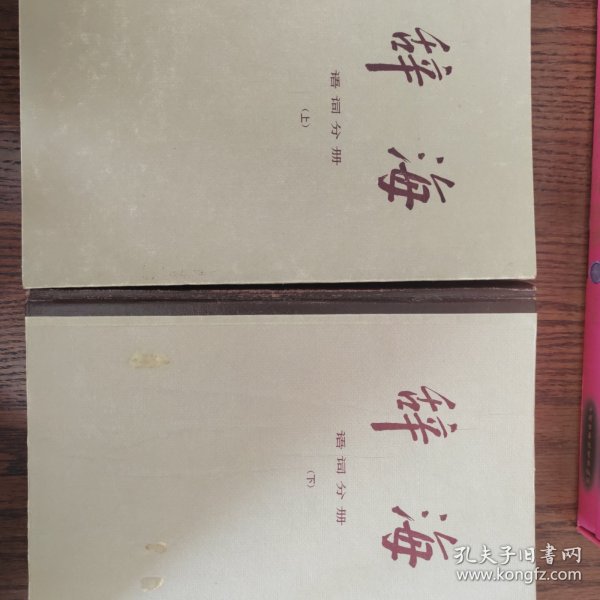 辞海
语词分册
(上)
辞海
语词分册
(下)
孔夫子旧书网
www.kongfz.com